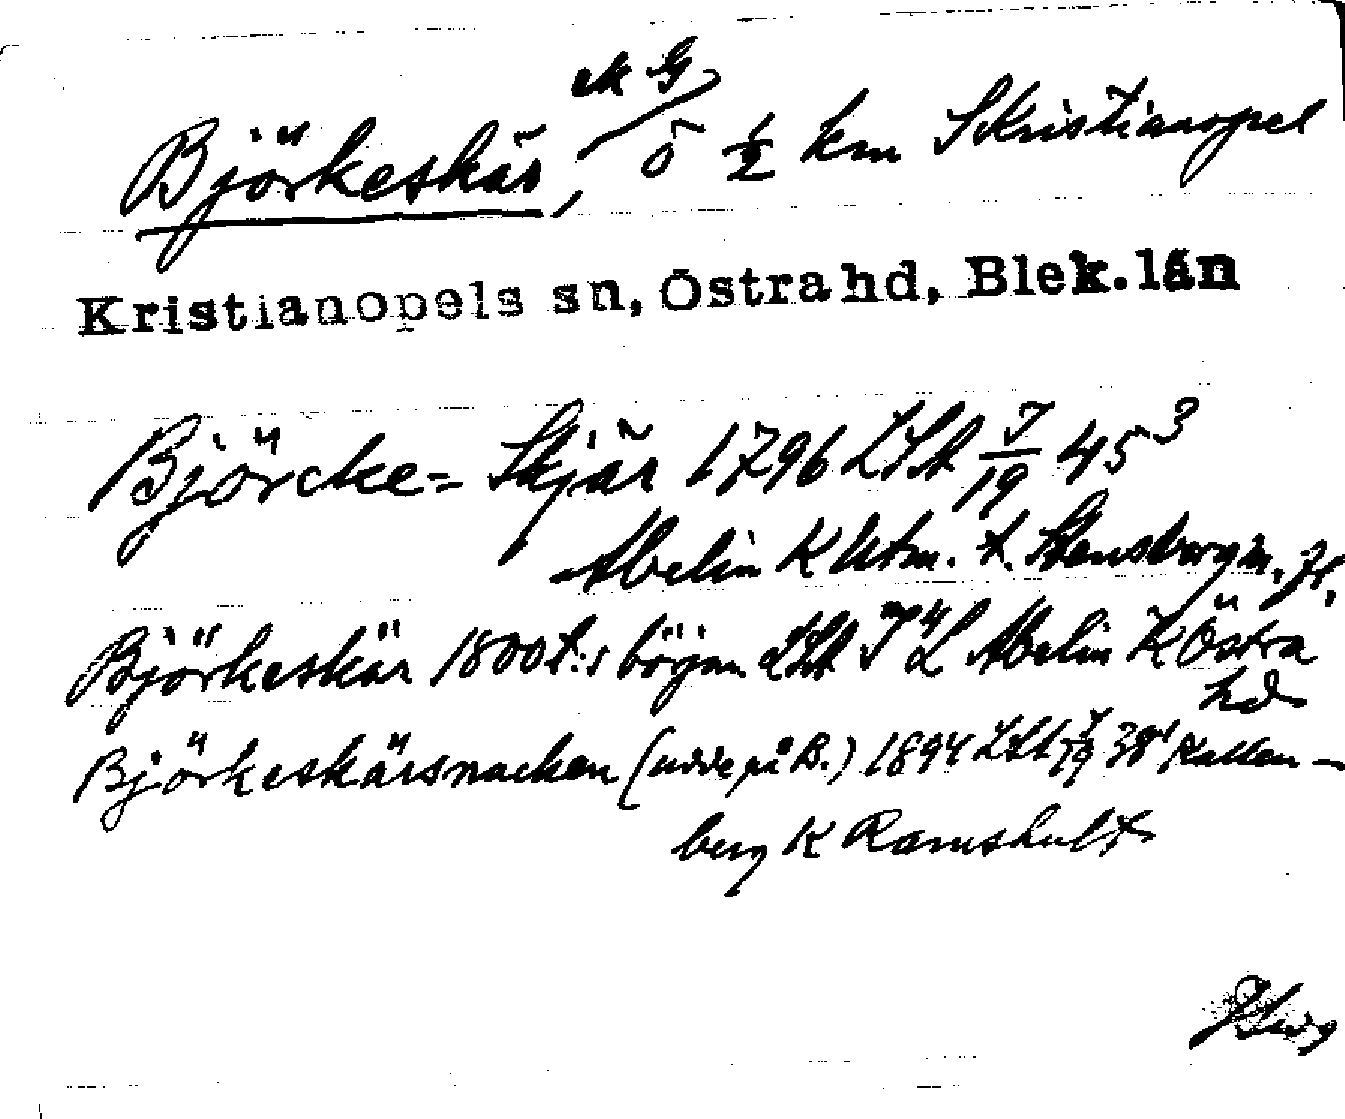 Björkeskär, ö 1/2 km S Kristianopel
Kristianopels sn, Östra hd, Blek. län
Björcke= Skjär 1796 LSA J/19 45³
Abelin K Utm. t. Stensborg m. fl.
Björkeskär 1800t:s början LSA Abelin K Östra
hd
Björkeskärsnacken (udde på B.) 1894 LSA J/19 38¹ Kallen-
berg K Ramshult